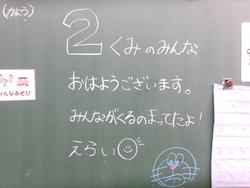 (かよう)
2くみのみんな
おはようございます。
みんながくるのまってたよ!
えらい
んなあそび